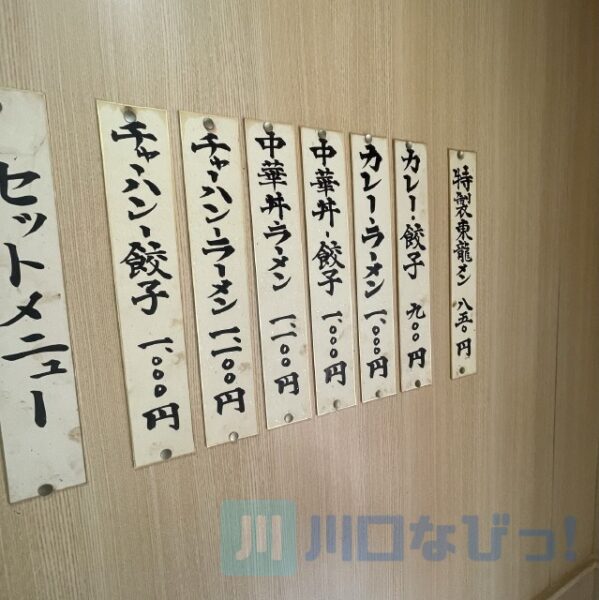 セットメニュー
チャーハン・餃子 一、〇〇〇円
チャーハン・ラーメン 一、一〇〇円
中華丼・ラーメン 一、一〇〇円
中華丼・餃子 一、〇〇〇円
カレー・ラーメン 一、〇〇〇円
カレー・餃子 九〇〇円
特製東龍メン 八五〇円
川 川口なびっ!